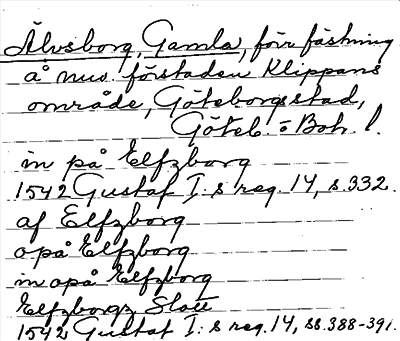 Älvsborg, Gamla, förr fästning
å nuv. förstaden Klippans
område, Göteborgs stad,
Göteb. o Boh. l.
in på Elfzborg
1542 Gustaf I:s reg. 14, s. 332.
af Elfzborg
opå Elfzborg
in opå Elfzborg
Elfzborgz Slott
1542 Gustaf I:s reg. 14, ss. 388-391.